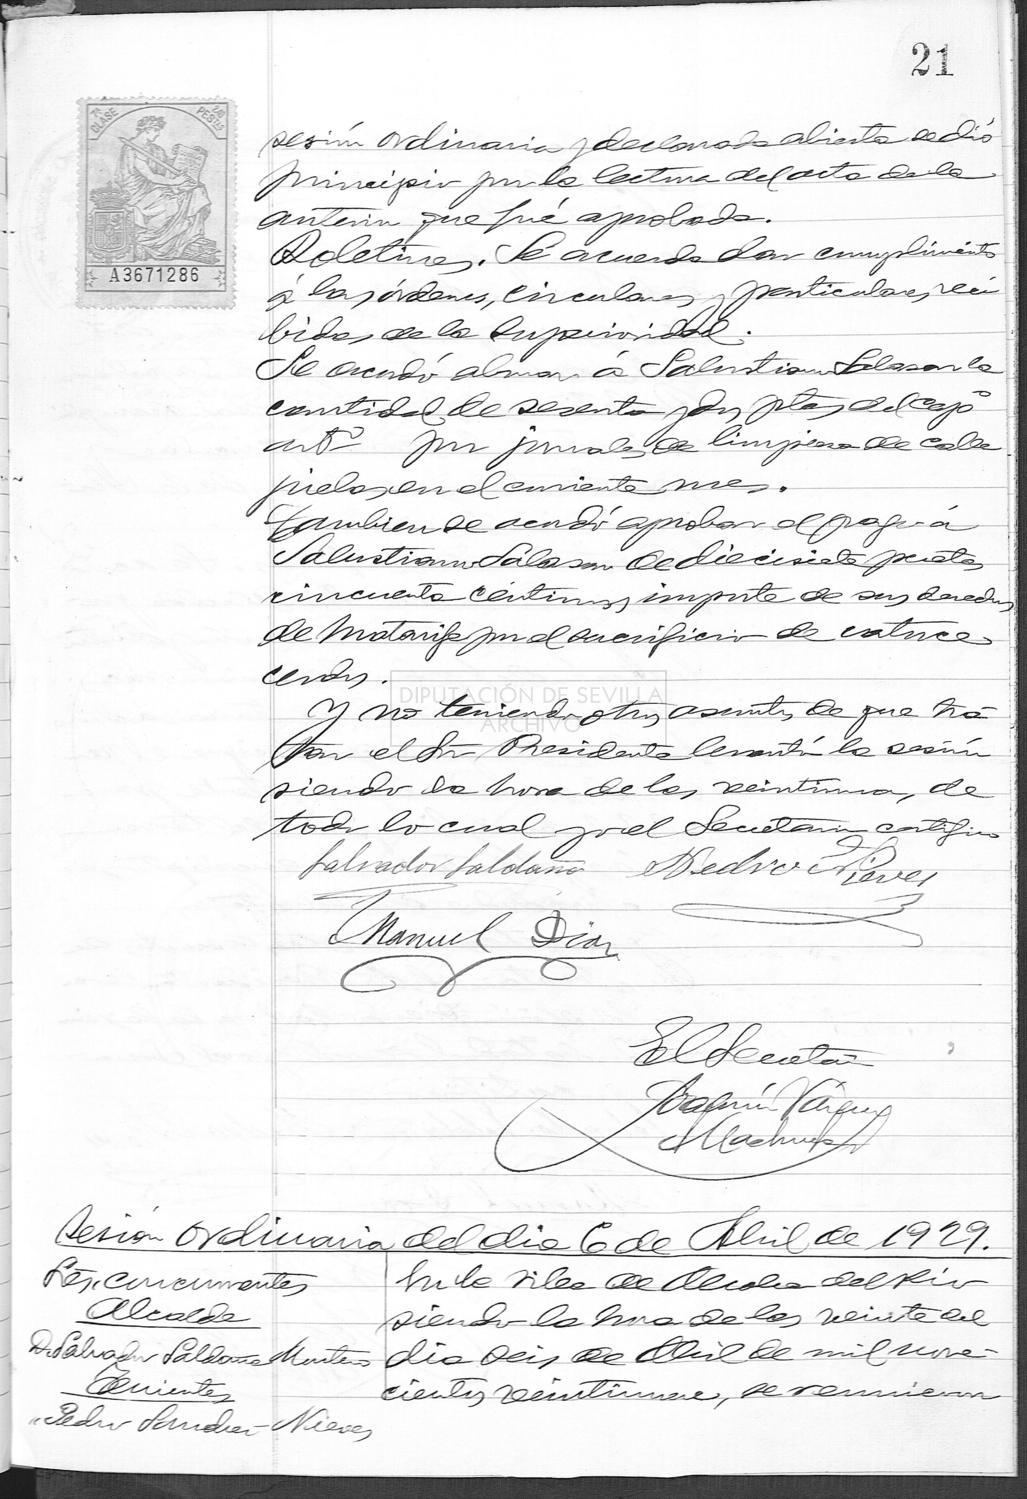 21
7ª CLASE
PESETAS
A3671286
sesión ordinaria y declarada abierta se dió
principio por la lectura del acta de la
anterior que fué aprobada.
Boletines. Se acuerda dar cumplimiento
á las órdenes, circulares y particulares, reci
bidas de la Superioridad.
Se acordó abonar á Salustiano Salazar la
cantidad de sesenta y dos ptas, del capº
artº por jornales de limpieza de calle
juelas en el corriente mes.
Tambien se acordó aprobar el pago á
Salustiano Salazar de diecisiete pesetas
cincuenta céntimos, importe de sus derechos
de Matarife por el sacrificio de catorce
cerdos.
DIPUTACIÓN DE SEVILLA
ARCHIVO
Y no teniendo otros asuntos de que tra
tar el Sr. Presidente levantó la sesión
siendo la hora de las veintiuna, de
todo lo cual yo el Secretario certifico
Salvador Saldaña Pedro S. Nieves
Manuel Diaz
El Secretario
Joaquín Vázquez
Machuca
Sesión ordinaria del dia 6 de Abril de 1929.
Sres. concurrentes
Alcalde
D. Salvador Saldaña Montero
Tenientes
" Pedro Sanchez Nieves
En la villa de Alcolea del Rio
siendo la hora de las veinte del
dia seis de Abril de mil nove-
cientos veintinueve, se reunieron